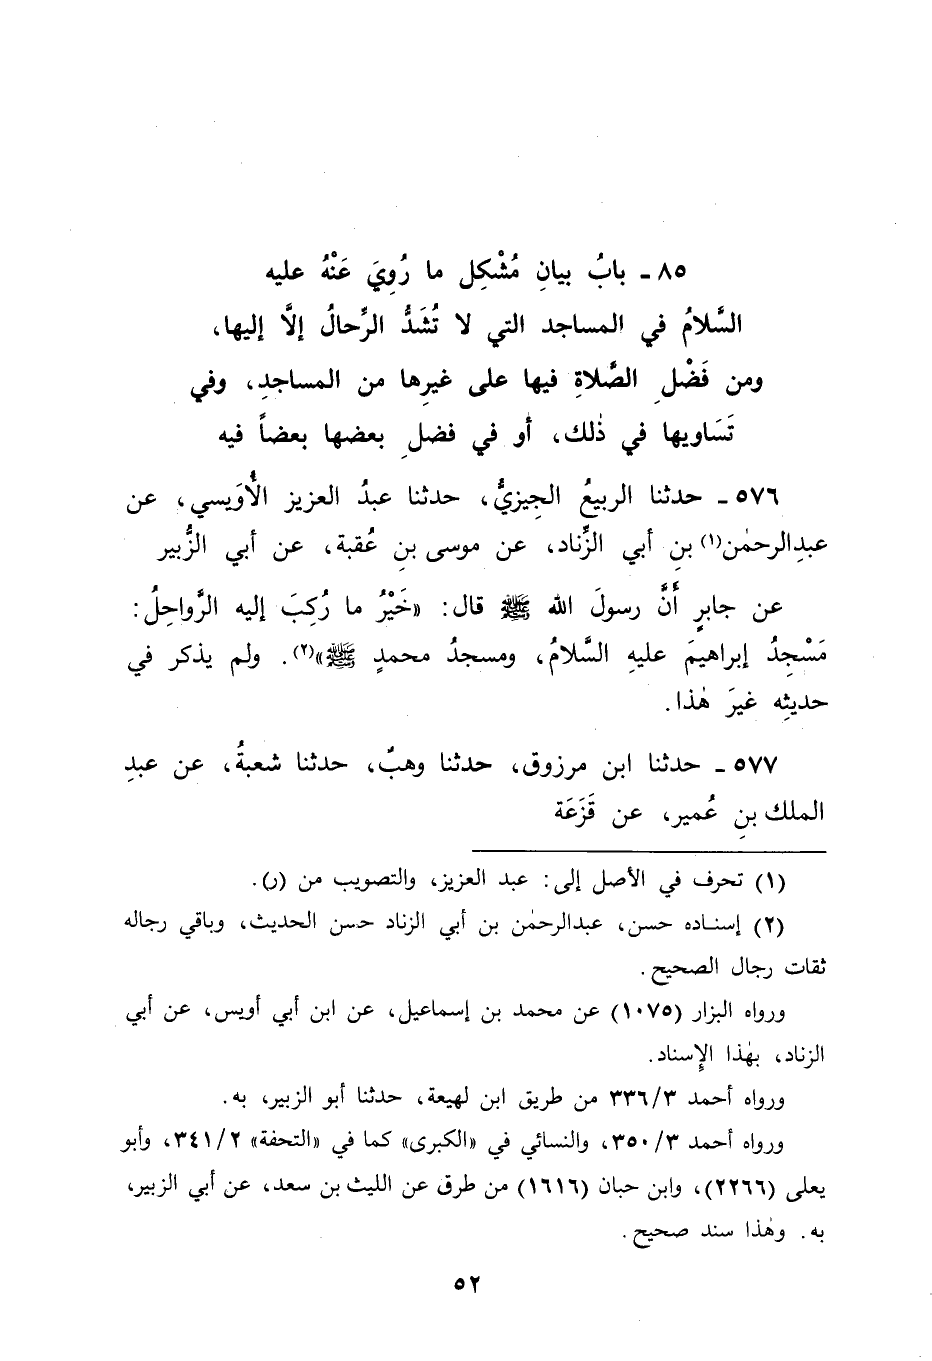 ٨٥ ـ بابُ بيانِ مُشْكِل ما رُوِيَ عَنْهُ عليه
السَّلامُ في المساجد التي لا تُشَدُّ الرِّحالُ إلَّا إليها،
ومن فَضْلِ الصَّلاةِ فيها على غيرِها من المساجدِ، وفي
تَسَاويها في ذٰلك، أو في فضلِ بعضها بعضاً فيه
٥٧٦ ـ حدثنا الربيعُ الجِيزيُّ، حدثنا عبدُ العزيز الأُوَيسي، عن
عبدِالرحمٰن(١) بنِ أبي الزِّناد، عن موسى بنِ عُقبة، عن أبي الزُّبير
عن جابرٍ أَنَّ رسولَ الله ﷺ قال: «خَيْرُ ما رُكِبَ إليه الرَّواحِلُ:
مَسْجِدُ إبراهيمَ عليهِ السَّلامُ، ومسجدُ محمدٍ ﷺ»(٢). ولم يذكر في
حديثِه غيرَ هٰذا.
٥٧٧ ـ حدثنا ابن مرزوق، حدثنا وهبٌ، حدثنا شعبةُ، عن عبدِ
الملك بنِ عُمير، عن قَزَعَة
(١) تحرف في الأصل إلى: عبد العزيز، والتصويب من (ر).
(٢) إسناده حسن، عبدالرحمٰن بن أبي الزناد حسن الحديث، وباقي رجاله
ثقات رجال الصحيح.
ورواه البزار (١٠٧٥) عن محمد بن إسماعيل، عن ابن أبي أويس، عن أبي
الزناد، بهٰذا الإِسناد.
ورواه أحمد ٣٣٦/٣ من طريق ابن لهيعة، حدثنا أبو الزبير، به.
ورواه أحمد ٣٥٠/٣، والنسائي في «الكبرى» كما في «التحفة» ٣٤١/٢، وأبو
يعلى (٢٢٦٦)، وابن حبان (١٦١٦) من طرق عن الليث بن سعد، عن أبي الزبير،
به. وهٰذا سند صحيح.
٥٢